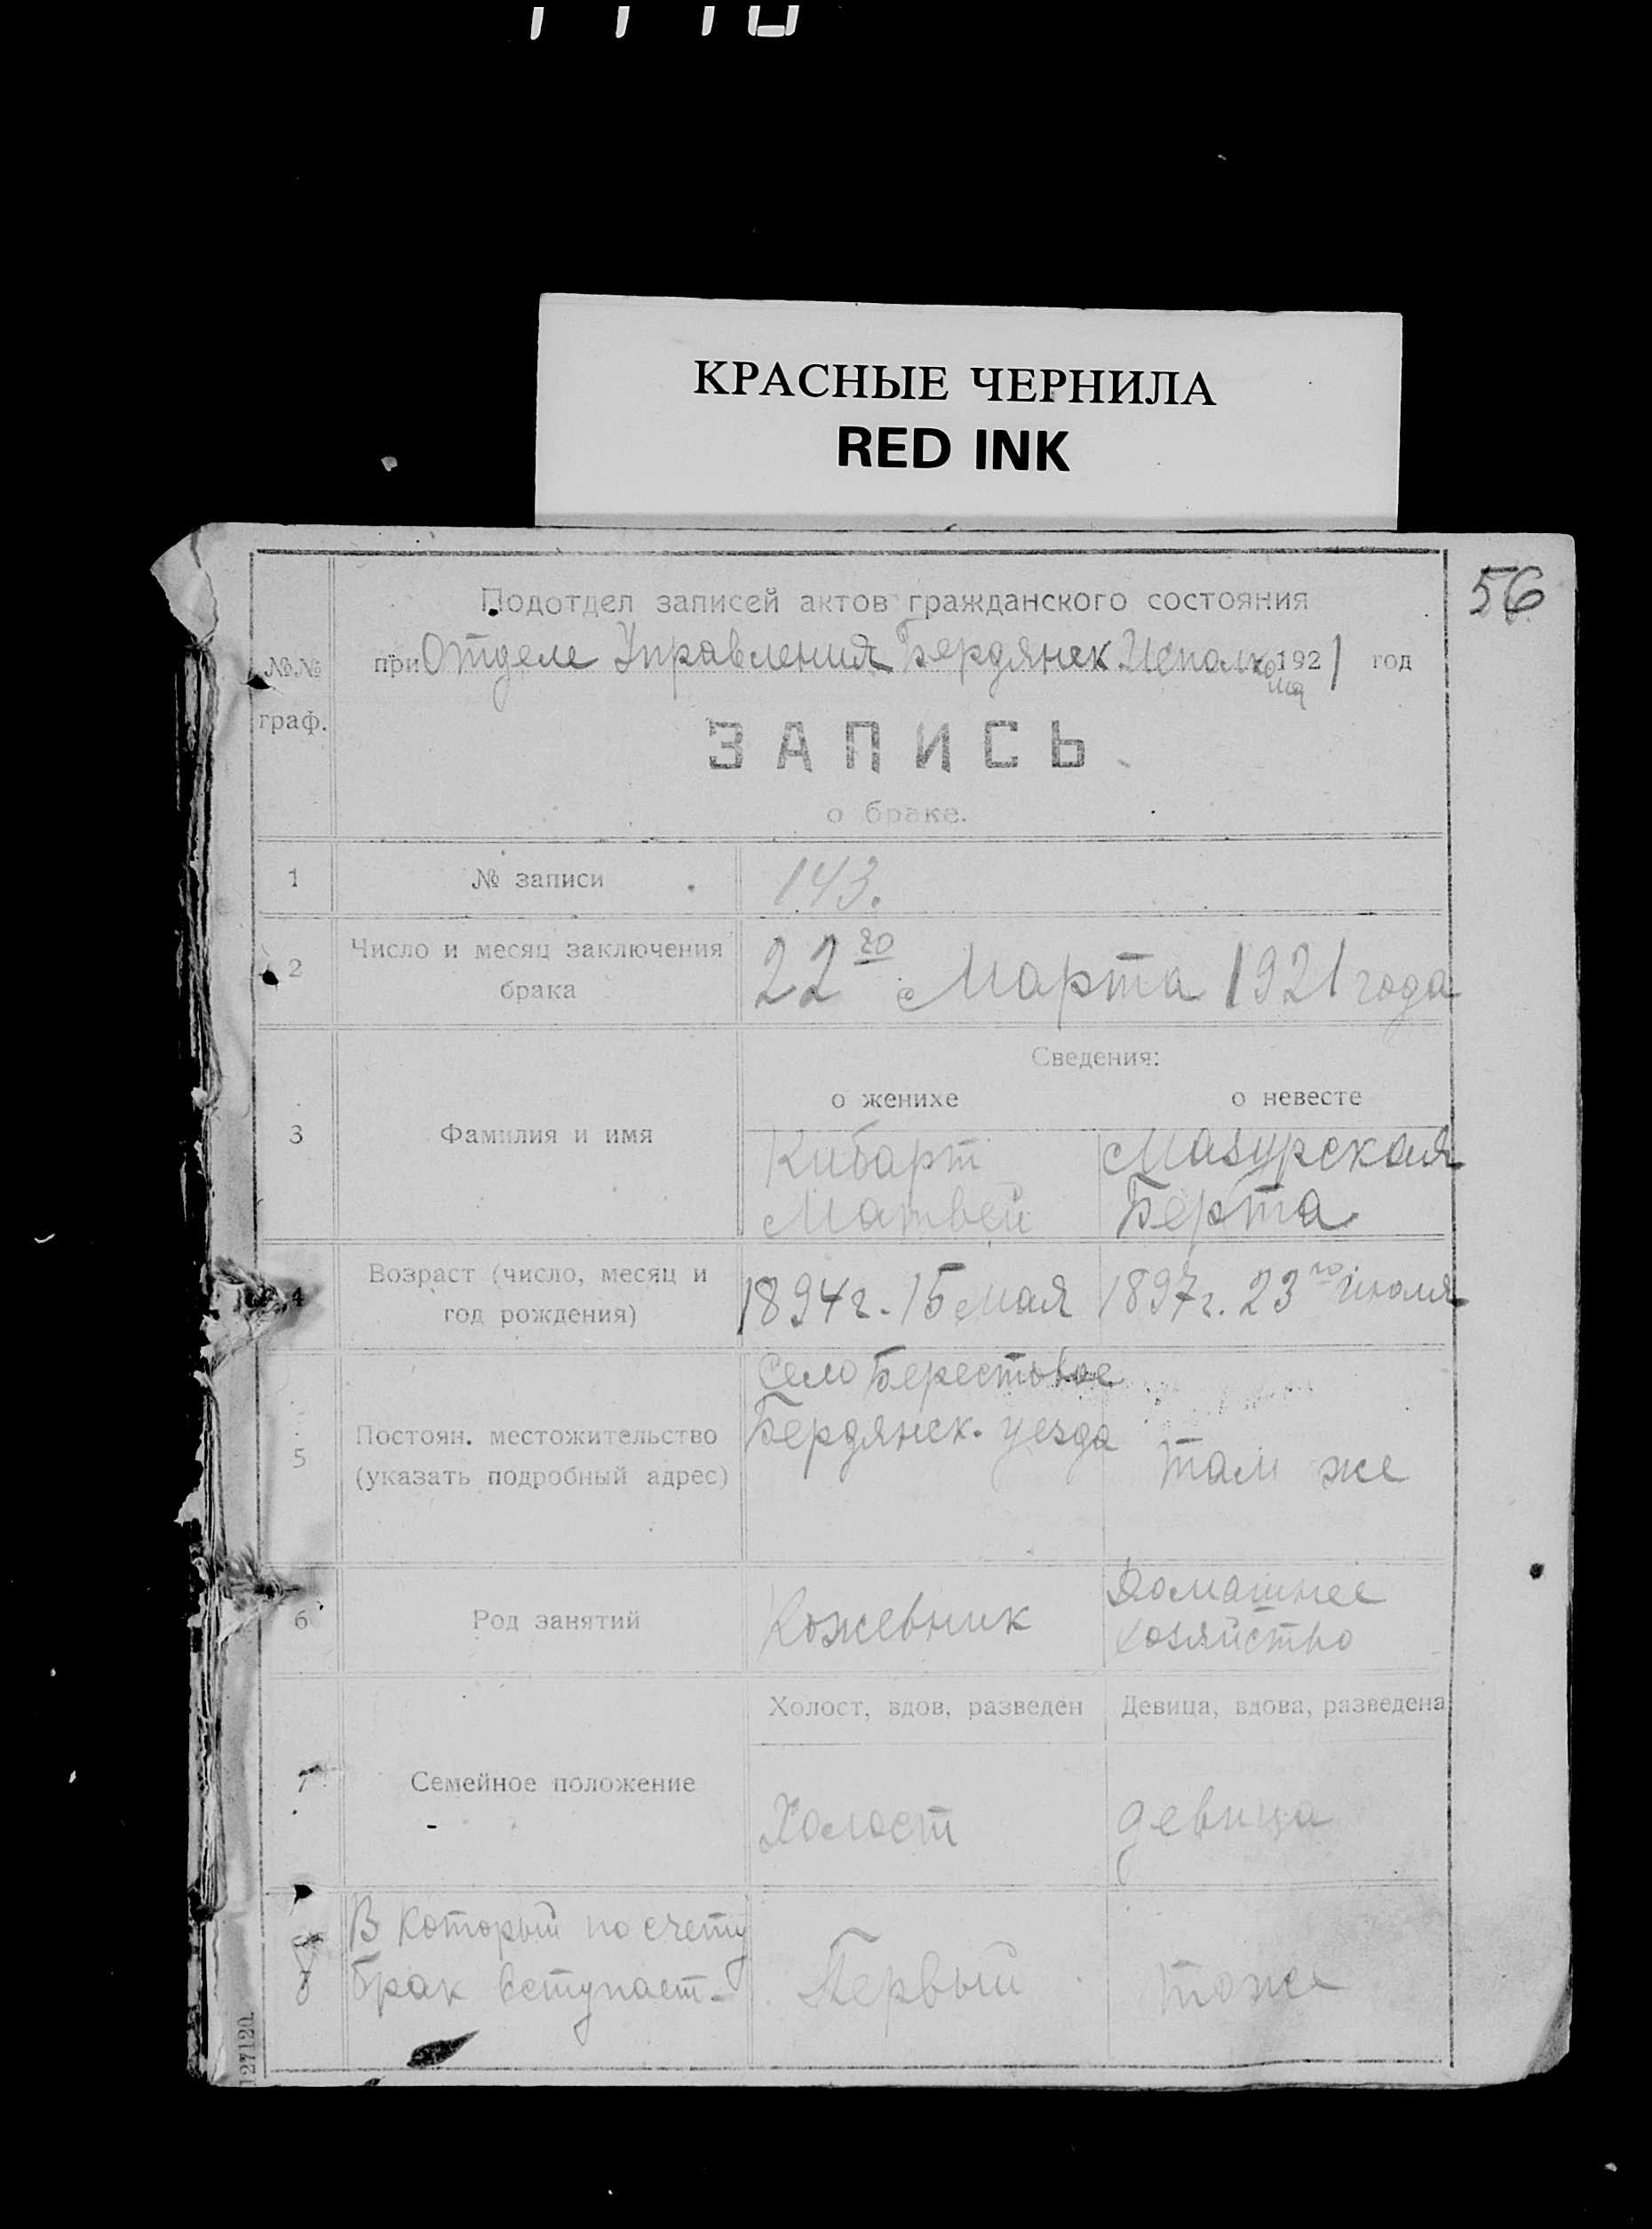 КРАСНЫЕ ЧЕРНИЛА
RED INK
56
Подотдел записей актов гражданского состояния
№№ граф.
при Отделе Управления Бердянск Исполкома 1921 год
ЗАПИСЬ
о браке.
1 № записи 143.
2 Число и месяц заключения брака
22го Марта 1921 года
Сведения:
о женихе о невесте
3 Фамилия и имя
Кибарт Мазурская
Матвей Берта
4 Возраст (число, месяц и год рождения)
1894 г. 15 мая 1897 г. 23го июля
5 Постоян. местожительство
(указать подробный адрес)
Село Берестовое
Бердянск. уезда
там же
6 Род занятий
Кожевник
Домашнее
хозяйство
Холост, вдов, разведен Девица, вдова, разведена
7 Семейное положение
Холост девица
8 В который по счету
брак вступает
Первый тоже
127120